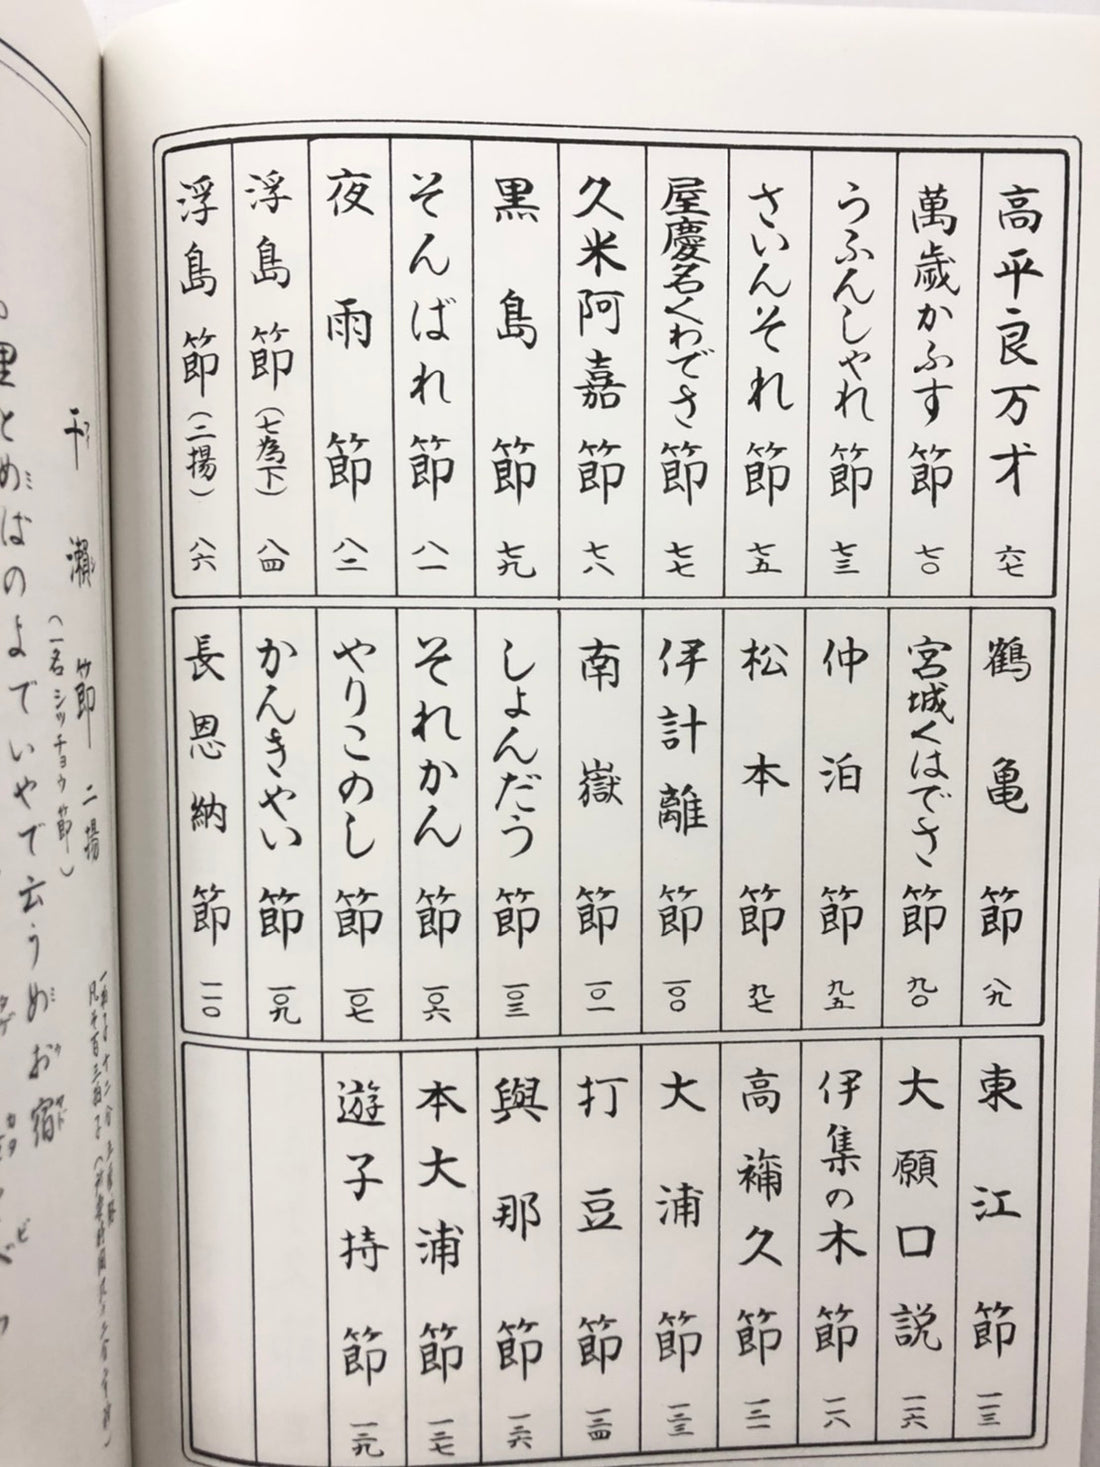 高平良万才 六七
萬歳かふす節 七〇
うふんしゃれ節 七三
さいんそれ節 七五
屋慶名くわでさ節 七七
久米阿嘉節 七八
黒島節 七九
そんばれ節 八一
夜雨節 八二
浮島節(七為下) 八四
浮島節(二揚) 八六
鶴亀節 八九
宮城くはでさ節 九〇
仲泊節 九五
松本節 九七
伊計離節 一〇〇
南嶽節 一〇一
しよんだう節 一〇三
それかん節 一〇六
やりこのし節 一〇七
かんきやい節 一〇九
長恩納節 一一〇
東江節 一一三
大願口説 一一六
伊集の木節 一一八
高禰久節 一二一
大浦節 一二三
打豆節 一二四
與那節 一二六
本大浦節 一二七
遊子持節 一二九
干瀬節 二揚
(一名シッチョウ節)
里とめばのよでいやで云うめお宿